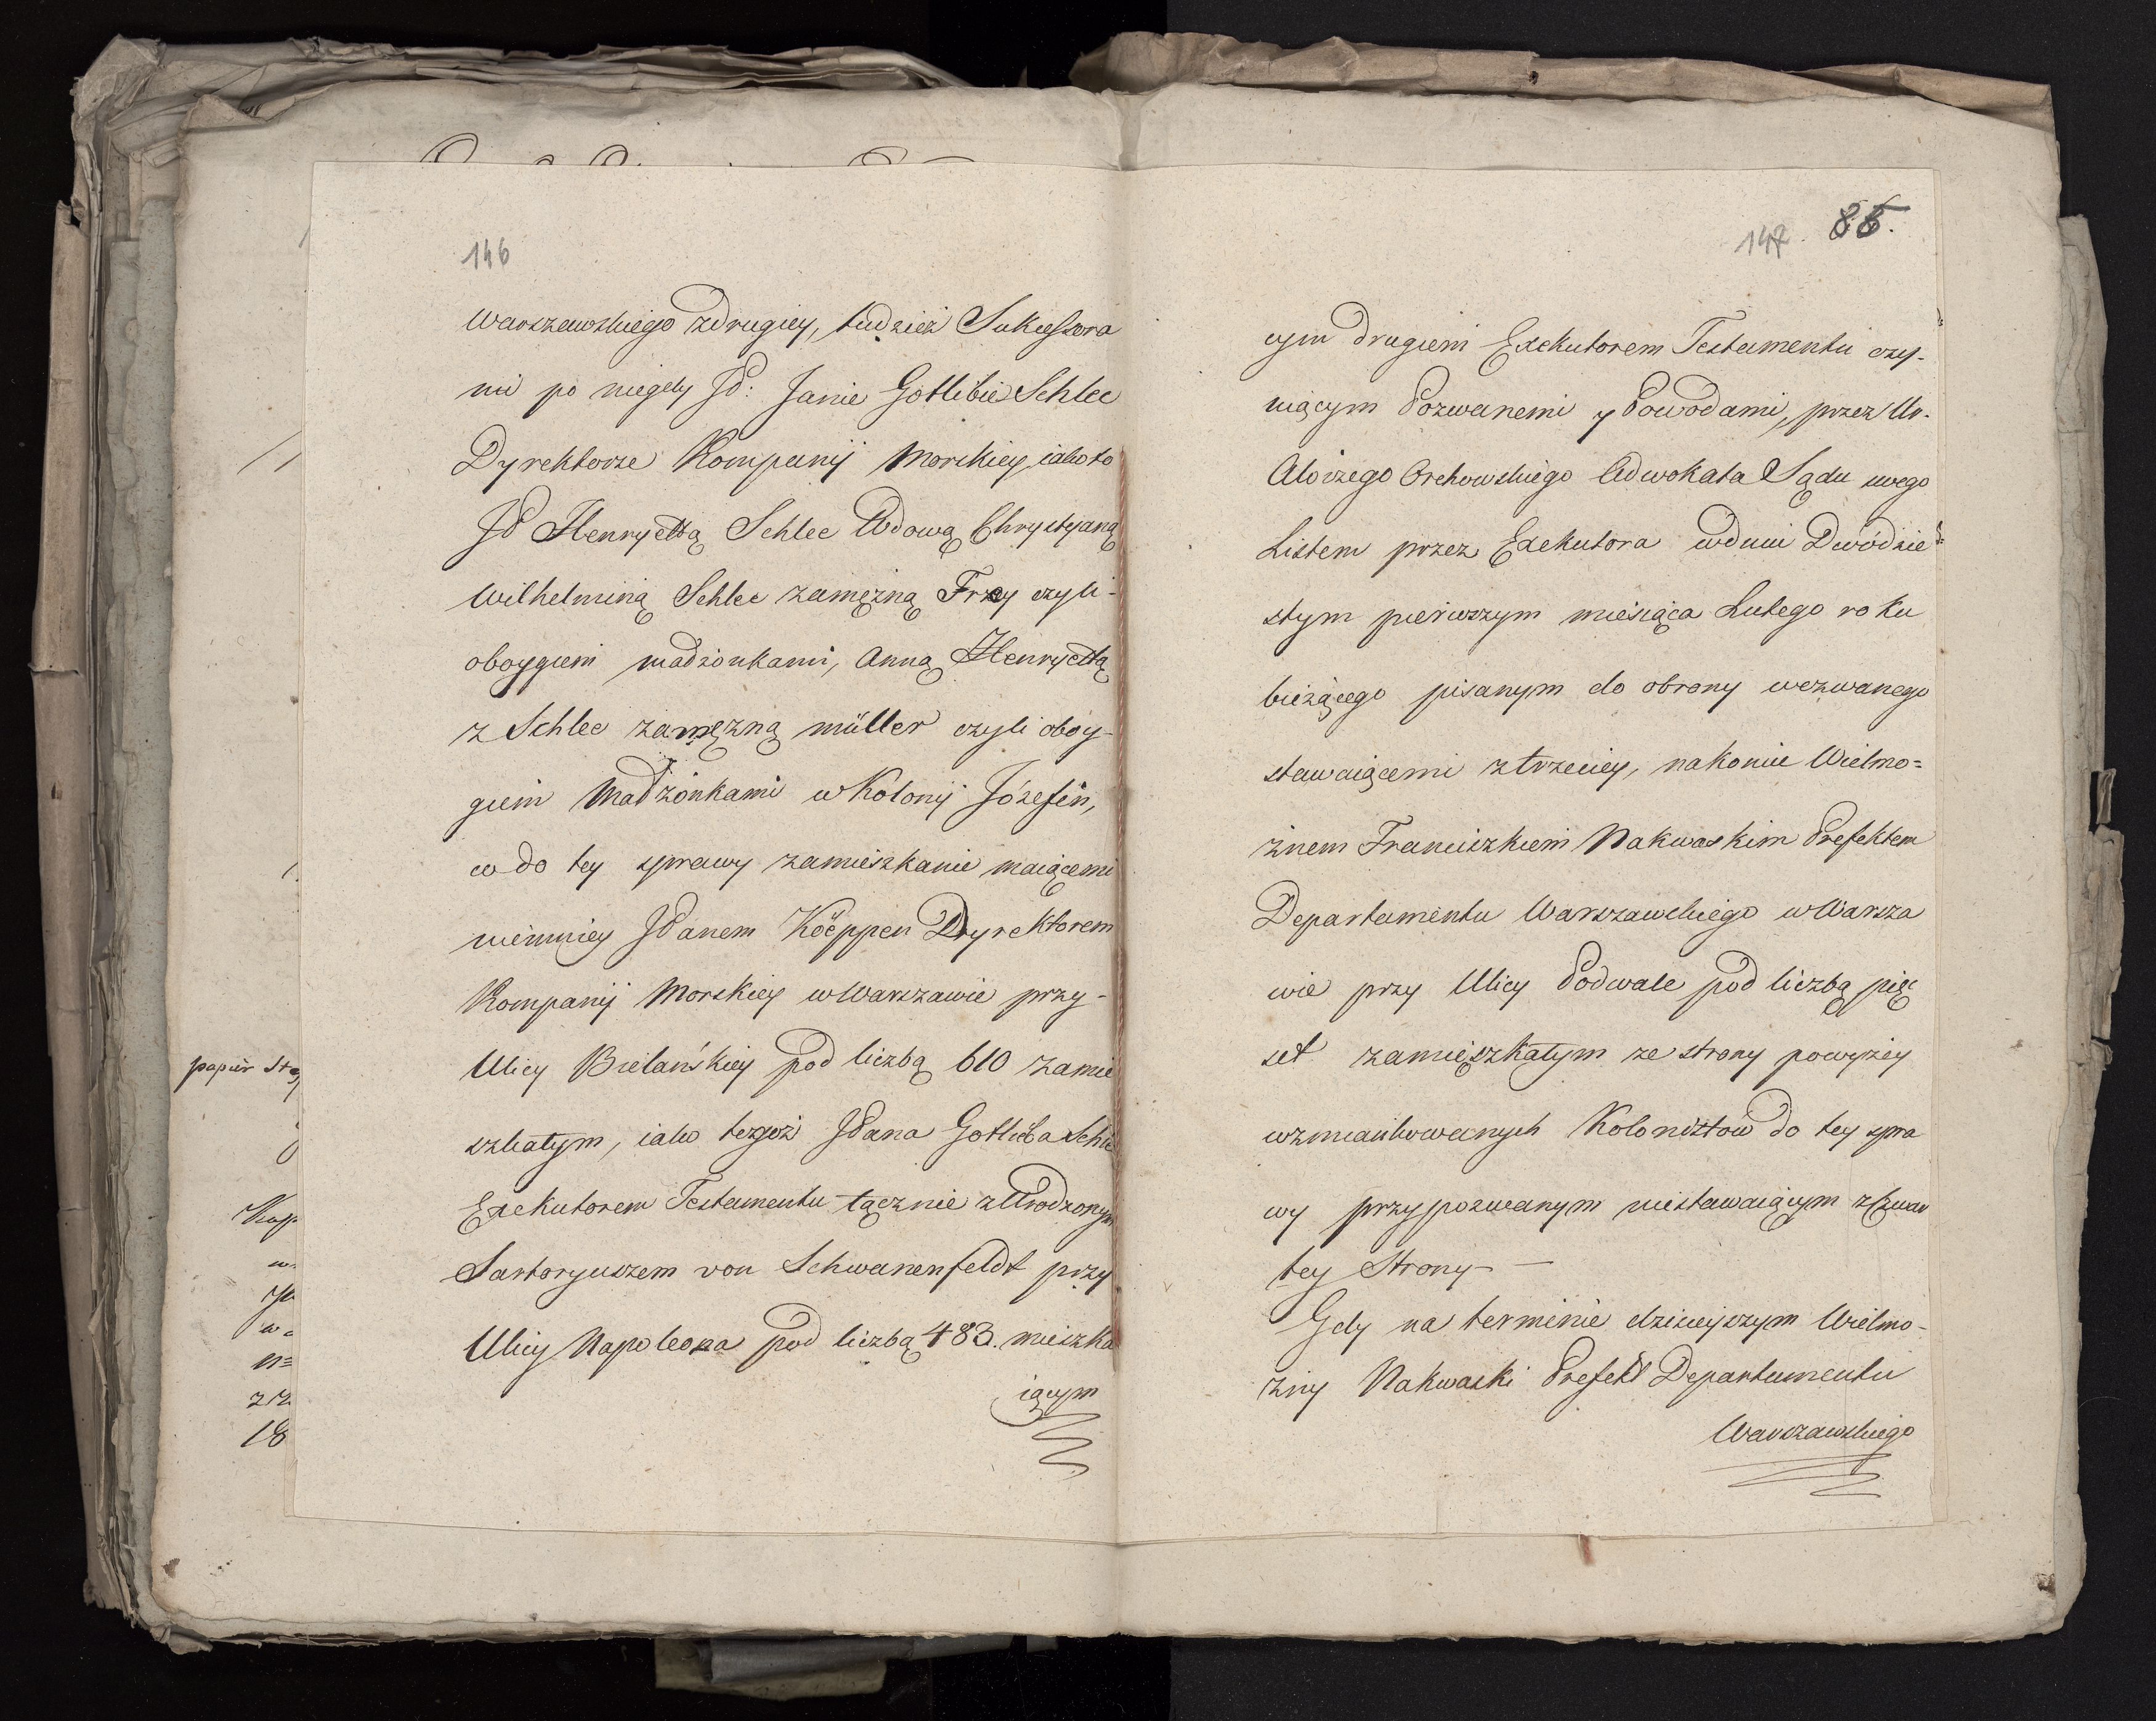 146
Warszawskiego zdrugiey, tudzież Sukcessora
mi po niegdy JP: Janie Gotlibie Schlee
Dyrektorze Kompanij Morskiey, iako to
JP Henryettą Schlee Wdową, Chrystyaną
Wilhelminą Schlee zamęzną Frey czyli-
oboygiem madżonkami, Anną Henryettą
z Schlee zamęzną müller czyli oboy-
giem Madżonkami w Kolonij Józefin,
co do tey sprawy zamieszkanie maiącemi
niemniey JPanem Köeppen Dyrektorem
Kompanij Morskiey w Warszawie przy-
Ulicy Bielańskiey pod liczbą 610 zamie
szkałym, iako tegoż JPana Gotliba Schle
Exekutorem Testamentu łącznie z Urodzonym
Sartoryuszem von Schwanenfeldt przy
Ulicy Napoleona pod liczbą 483. mieszka
iącym
papier
18
147. 85.
cym drugiem Exekutorem Testamentu czy-
niącym Pozwanemi y Powodami, przez Ur.
Aloizego Orchowskiego Adwokata Sądu swego
Listem przez Exekutora w dniu Dwódzie
stym pierwszym miesiąca Lutego roku
bieżącego pisanym do obrony wezwanego
stawaiącemi z trzeciey, nakoniec Wielmo=
żnem Franciszkiem Nakwaskim Prefektem
Departamentu Warszawskiego w Warsza
wie przy Ulicy Podwale pod liczbą pięc
set zamięszkałym ze strony powyżey
wzmiankowanych Kolonistów do tey spra
wy przypozwanym niestawaiącym z Czwar
tey Strony —
Gdy na terminie dzisieyszym Wielmo-
żny Nakwaski Prefekt Departamentu
Warszawskiego